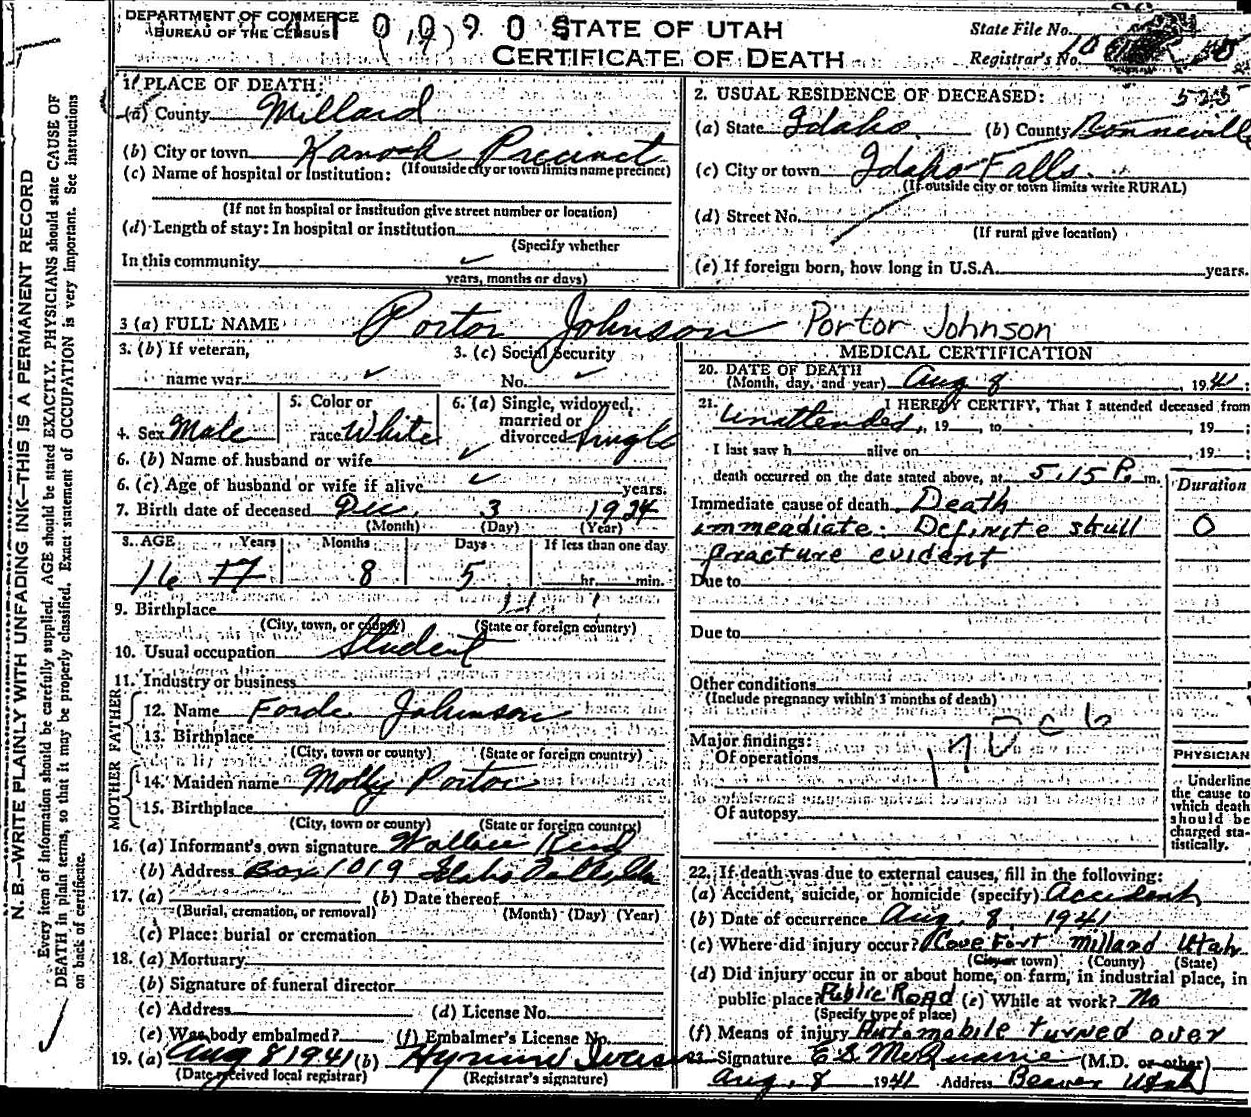 DEPARTMENT OF COMMERCE
BUREAU OF THE CENSUS
STATE OF UTAH
CERTIFICATE OF DEATH
State File No.
Registrar's No. 10
N. B.—WRITE PLAINLY WITH UNFADING INK—THIS IS A PERMANENT RECORD
Every item of information should be carefully supplied. AGE should be stated EXACTLY. PHYSICIANS should state CAUSE OF
DEATH in plain terms, so that it may be properly classified. Exact statement of OCCUPATION is very important. See instructions
on back of certificate.
1. PLACE OF DEATH:
(a) County Millard
(b) City or town Kanosh Precinct
(If outside city or town limits name precinct)
(c) Name of hospital or institution:
(If not in hospital or institution give street number or location)
(d) Length of stay: In hospital or institution
(Specify whether
In this community
years, months or days)
2. USUAL RESIDENCE OF DECEASED: 525
(a) State Idaho (b) County Bonneville
(c) City or town Idaho Falls
(If outside city or town limits write RURAL)
(d) Street No.
(If rural give location)
(e) If foreign born, how long in U.S.A. years.
3 (a) FULL NAME Portor Johnson Portor Johnson
3. (b) If veteran,
name war
3. (c) Social Security
No.
4. Sex Male
5. Color or
race White
6. (a) Single, widowed,
married or
divorced Single
6. (b) Name of husband or wife
6. (c) Age of husband or wife if alive years.
7. Birth date of deceased Dec 3 1924
(Month) (Day) (Year)
8. AGE Years Months Days If less than one day
16 17 8 5 hr. min.
9. Birthplace
(City, town, or county) (State or foreign country)
10. Usual occupation Student
11. Industry or business
FATHER
12. Name Forde Johnson
13. Birthplace
(City, town or county) (State or foreign country)
MOTHER
14. Maiden name Molly Portor
15. Birthplace
(City, town or county) (State or foreign country)
16. (a) Informant's own signature Wallace Reed
(b) Address Box 1019 Idaho Falls, Ida
17. (a) (b) Date thereof
(Burial, cremation, or removal) (Month) (Day) (Year)
(c) Place: burial or cremation
18. (a) Mortuary
(b) Signature of funeral director
(c) Address (d) License No.
(e) Was body embalmed? (f) Embalmer's License No.
19. (a) Aug 8 1941 (b)
(Date received local registrar) (Registrar's signature)
MEDICAL CERTIFICATION
20. DATE OF DEATH
(Month, day, and year) Aug 8, 1941;
21. I HEREBY CERTIFY, That I attended deceased from
Unattended, 19 , to , 19 ;
I last saw h alive on , 19 ;
death occurred on the date stated above, at 5.15 P. m.
Duration
Immediate cause of death Death
immeadiate: Definite skull 0
fracture evident
Due to
Due to
Other conditions
(Include pregnancy within 3 months of death)
Major findings:
Of operations
Of autopsy
PHYSICIAN
Underline
the cause to
which death
should be
charged sta-
tistically.
22. If death was due to external causes, fill in the following:
(a) Accident, suicide, or homicide (specify) Accident
(b) Date of occurrence Aug. 8, 1941
(c) Where did injury occur? Cove Fort Millard Utah
(City or town) (County) (State)
(d) Did injury occur in or about home, on farm, in industrial place, in
public place? Public Road (e) While at work? No
(Specify type of place)
(f) Means of injury Automobile turned over
23. Signature (M.D. or other)
Aug. 8 1941 Address Beaver Utah